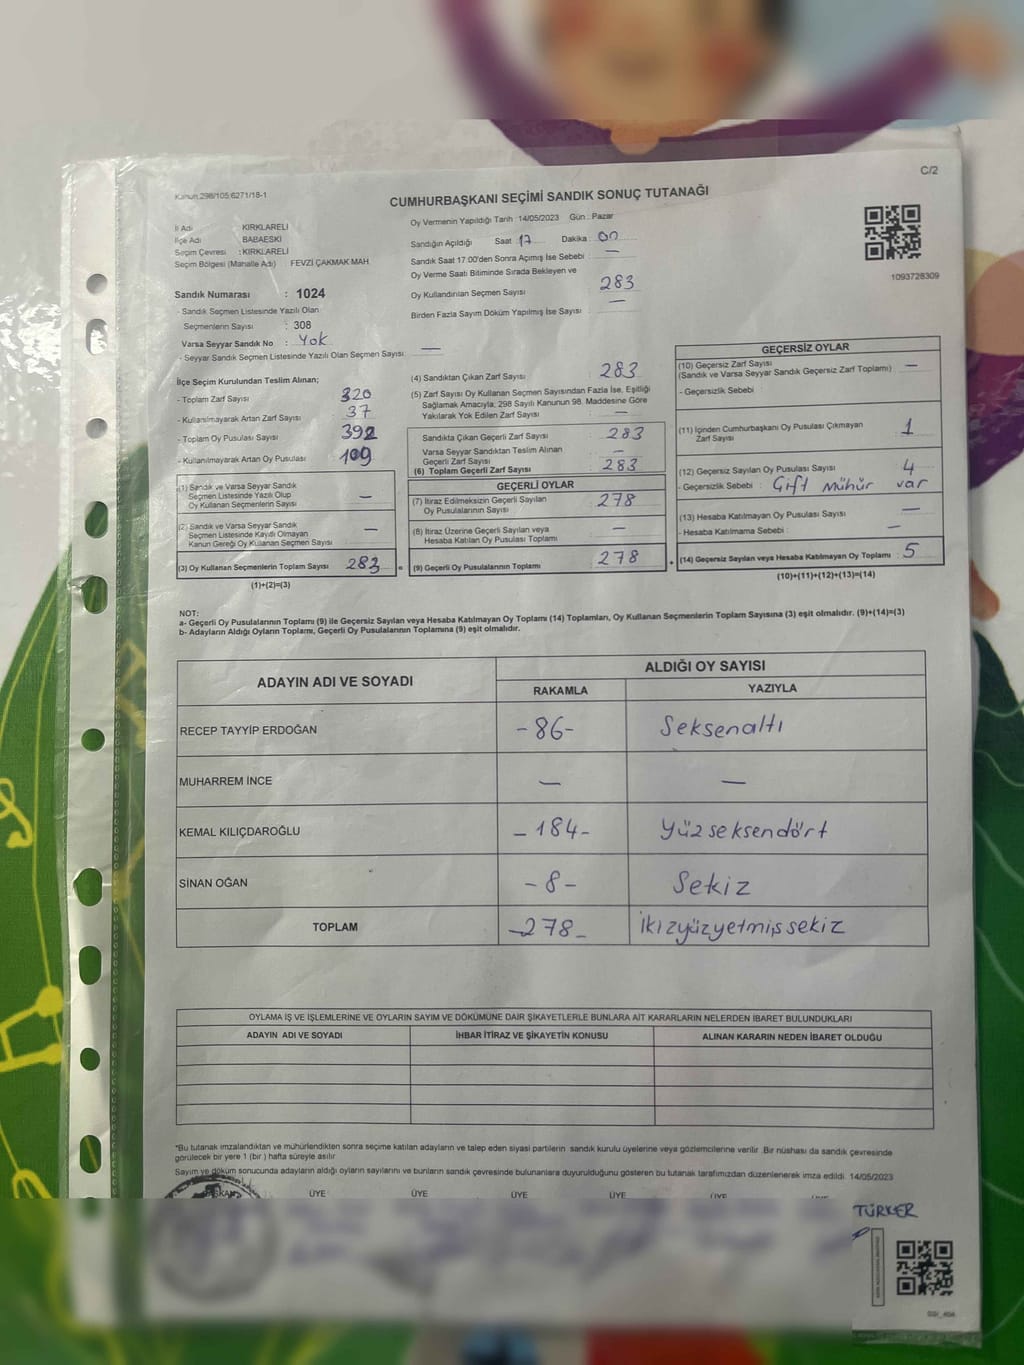 C/2
Kanun.298/105.6271/18-1
CUMHURBAŞKANI SEÇİMİ SANDIK SONUÇ TUTANAĞI
1093728309
İl Adı KIRKLARELİ
İlçe Adı BABAESKİ
Seçim Çevresi : KIRKLARELİ
Seçim Bölgesi (Mahalle Adı) FEVZİ ÇAKMAK MAH.
Sandık Numarası : 1024
- Sandık Seçmen Listesinde Yazılı Olan
Seçmenlerin Sayısı : 308
Varsa Seyyar Sandık No : Yok
- Seyyar Sandık Seçmen Listesinde Yazılı Olan Seçmen Sayısı: —
Oy Vermenin Yapıldığı Tarih : 14/05/2023 Gün : Pazar
Sandığın Açıldığı Saat 17 Dakika 00
Sandık Saat 17.00'den Sonra Açımış İse Sebebi : —
Oy Verme Saati Bitiminde Sırada Bekleyen ve
Oy Kullandırılan Seçmen Sayısı 283
Birden Fazla Sayım Döküm Yapılmış İse Sayısı : —
İlçe Seçim Kurulundan Teslim Alınan;
- Toplam Zarf Sayısı 320
- Kullanılmayarak Artan Zarf Sayısı : 37
- Toplam Oy Pusulası Sayısı 392
- Kullanılmayarak Artan Oy Pusulası : 109
(1) Sandık ve Varsa Seyyar Sandık
Seçmen Listesinde Yazılı Olup
Oy Kullanan Seçmenlerin Sayısı —
(2) Sandık ve Varsa Seyyar Sandık
Seçmen Listesinde Kayıtlı Olmayan
Kanun Gereği Oy Kullanan Seçmen Sayısı —
(3) Oy Kullanan Seçmenlerin Toplam Sayısı 283 =
(1)+(2)=(3)
(4) Sandıktan Çıkan Zarf Sayısı : 283
(5) Zarf Sayısı Oy Kullanan Seçmen Sayısından Fazla İse, Eşitliği
Sağlamak Amacıyla; 298 Sayılı Kanunun 98. Maddesine Göre
Yakılarak Yok Edilen Zarf Sayısı : —
Sandıkta Çıkan Geçerli Zarf Sayısı : 283
Varsa Seyyar Sandıktan Teslim Alınan
Geçerli Zarf Sayısı : —
(6) Toplam Geçerli Zarf Sayısı : 283
GEÇERLİ OYLAR
(7) İtiraz Edilmeksizin Geçerli Sayılan
Oy Pusulalarının Sayısı : 278
(8) İtiraz Üzerine Geçerli Sayılan veya
Hesaba Katılan Oy Pusulası Toplamı : —
(9) Geçerli Oy Pusulalarının Toplamı : 278 +
GEÇERSİZ OYLAR
(10) Geçersiz Zarf Sayısı
(Sandık ve Varsa Seyyar Sandık Geçersiz Zarf Toplamı) : —
- Geçersizlik Sebebi :
(11) İçinden Cumhurbaşkanı Oy Pusulası Çıkmayan
Zarf Sayısı 1
(12) Geçersiz Sayılan Oy Pusulası Sayısı : 4
- Geçersizlik Sebebi : Çift mühür var
(13) Hesaba Katılmayan Oy Pusulası Sayısı : —
- Hesaba Katılmama Sebebi : —
(14) Geçersiz Sayılan veya Hesaba Katılmayan Oy Toplamı : 5
(10)+(11)+(12)+(13)=(14)
NOT:
a- Geçerli Oy Pusulalarının Toplamı (9) ile Geçersiz Sayılan veya Hesaba Katılmayan Oy Toplamı (14) Toplamları, Oy Kullanan Seçmenlerin Toplam Sayısına (3) eşit olmalıdır. (9)+(14)=(3)
b- Adayların Aldığı Oyların Toplamı, Geçerli Oy Pusulalarının Toplamına (9) eşit olmalıdır.
ADAYIN ADI VE SOYADI ALDIĞI OY SAYISI
RAKAMLA YAZIYLA
RECEP TAYYİP ERDOĞAN -86- Seksenaltı
MUHARREM İNCE — —
KEMAL KILIÇDAROĞLU -184- yüzseksendört
SİNAN OĞAN -8- Sekiz
TOPLAM -278- İkizyüzyetmişsekiz
OYLAMA İŞ VE İŞLEMLERİNE VE OYLARIN SAYIM VE DÖKÜMÜNE DAİR ŞİKAYETLERLE BUNLARA AİT KARARLARIN NELERDEN İBARET BULUNDUKLARI
ADAYIN ADI VE SOYADI İHBAR İTİRAZ VE ŞİKAYETİN KONUSU ALINAN KARARIN NEDEN İBARET OLDUĞU
*Bu tutanak imzalandıktan ve mühürlendikten sonra seçime katılan adayların ve talep eden siyasi partilerin sandık kurulu üyelerine veya gözlemcilerine verilir. Bir nüshası da sandık çevresinde
görülecek bir yere 1 (bir ) hafta süreyle asılır.
Sayım ve döküm sonucunda adayların aldığı oyların sayılarını ve bunların sandık çevresinde bulunanlara duyurulduğunu gösteren bu tutanak tarafımızdan düzenlenerek imza edildi. 14/05/2023
BAŞKAN ÜYE ÜYE ÜYE ÜYE ÜYE ÜYE
TÜRKER